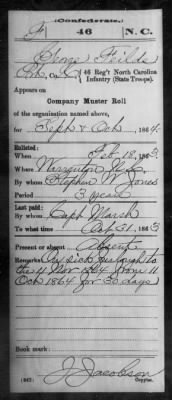 (Confederate.)
F 46 N.C.
George Feilds
Co. 46 Reg't North Carolina
Infantry (State Troops).
Appears on
Company Muster Roll
of the organization named above,
for Sept & Oct, 1864.
Enlisted:
When Feb 18, 1863.
Where Warrenton N.C.
By whom Stephen W Jones
Period 3 years
Last paid:
By whom Capt Marsh
To what time Oct 31, 1863
Present or absent Absent
Remarks: On sick furlough to
the 11 Nov 1864 from 11
Oct 1864 for 30 days
Book mark:
J. Jacobson
(642) Copyist.